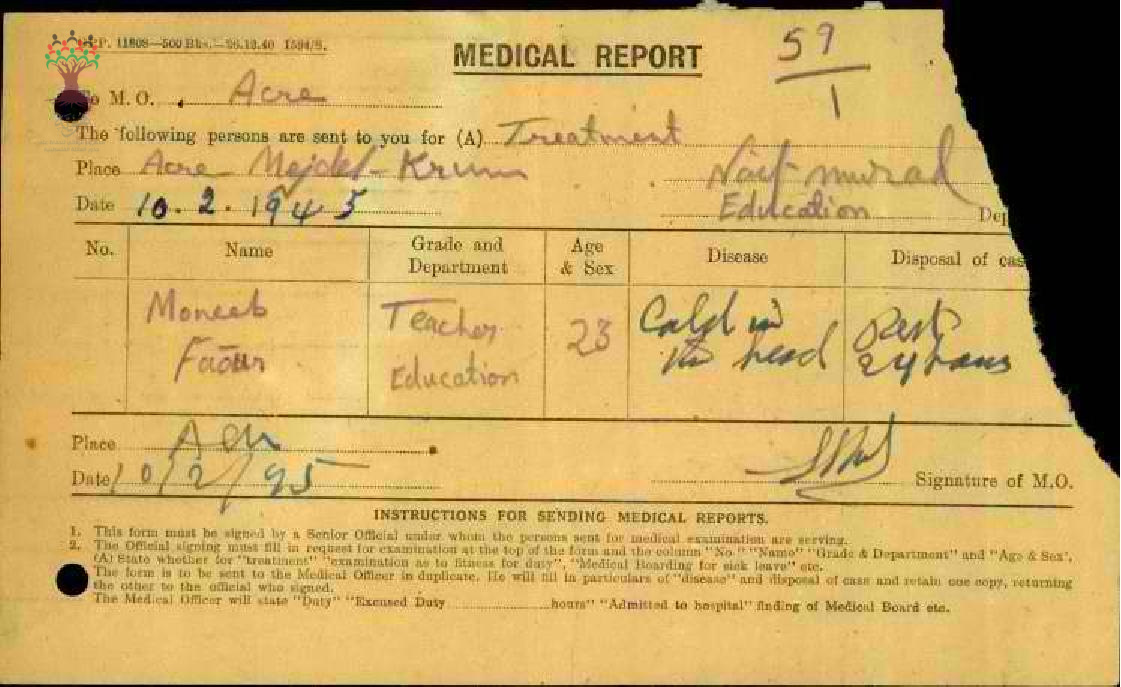 G.P.P. 11808—500 Bks.—26.12.40 1594/S.
MEDICAL REPORT
59
1
To M.O. Acre
The following persons are sent to you for (A) Treatment
Place Acre Mejdel-Krum
Naif Murad
Date 10.2.1945
Education Dep
No. Name Grade and Department Age & Sex Disease Disposal of cas
Moneeb Faour Teacher Education 23 Cold in the head Rest 24 hours
Place Acre
Date 10/2/45
Signature of M.O.
INSTRUCTIONS FOR SENDING MEDICAL REPORTS.
1. This form must be signed by a Senior Official under whom the persons sent for medical examination are serving.
2. The Official signing must fill in request for examination at the top of the form and the column "No." "Name" "Grade & Department" and "Age & Sex".
(A) State whether for "treatment" "examination as to fitness for duty", "Medical Boarding for sick leave" etc.
The form is to be sent to the Medical Officer in duplicate. He will fill in particulars of "disease" and disposal of case and retain one copy, returning
the other to the official who signed.
The Medical Officer will state "Duty" "Excused Duty ............ hours" "Admitted to hospital" finding of Medical Board etc.